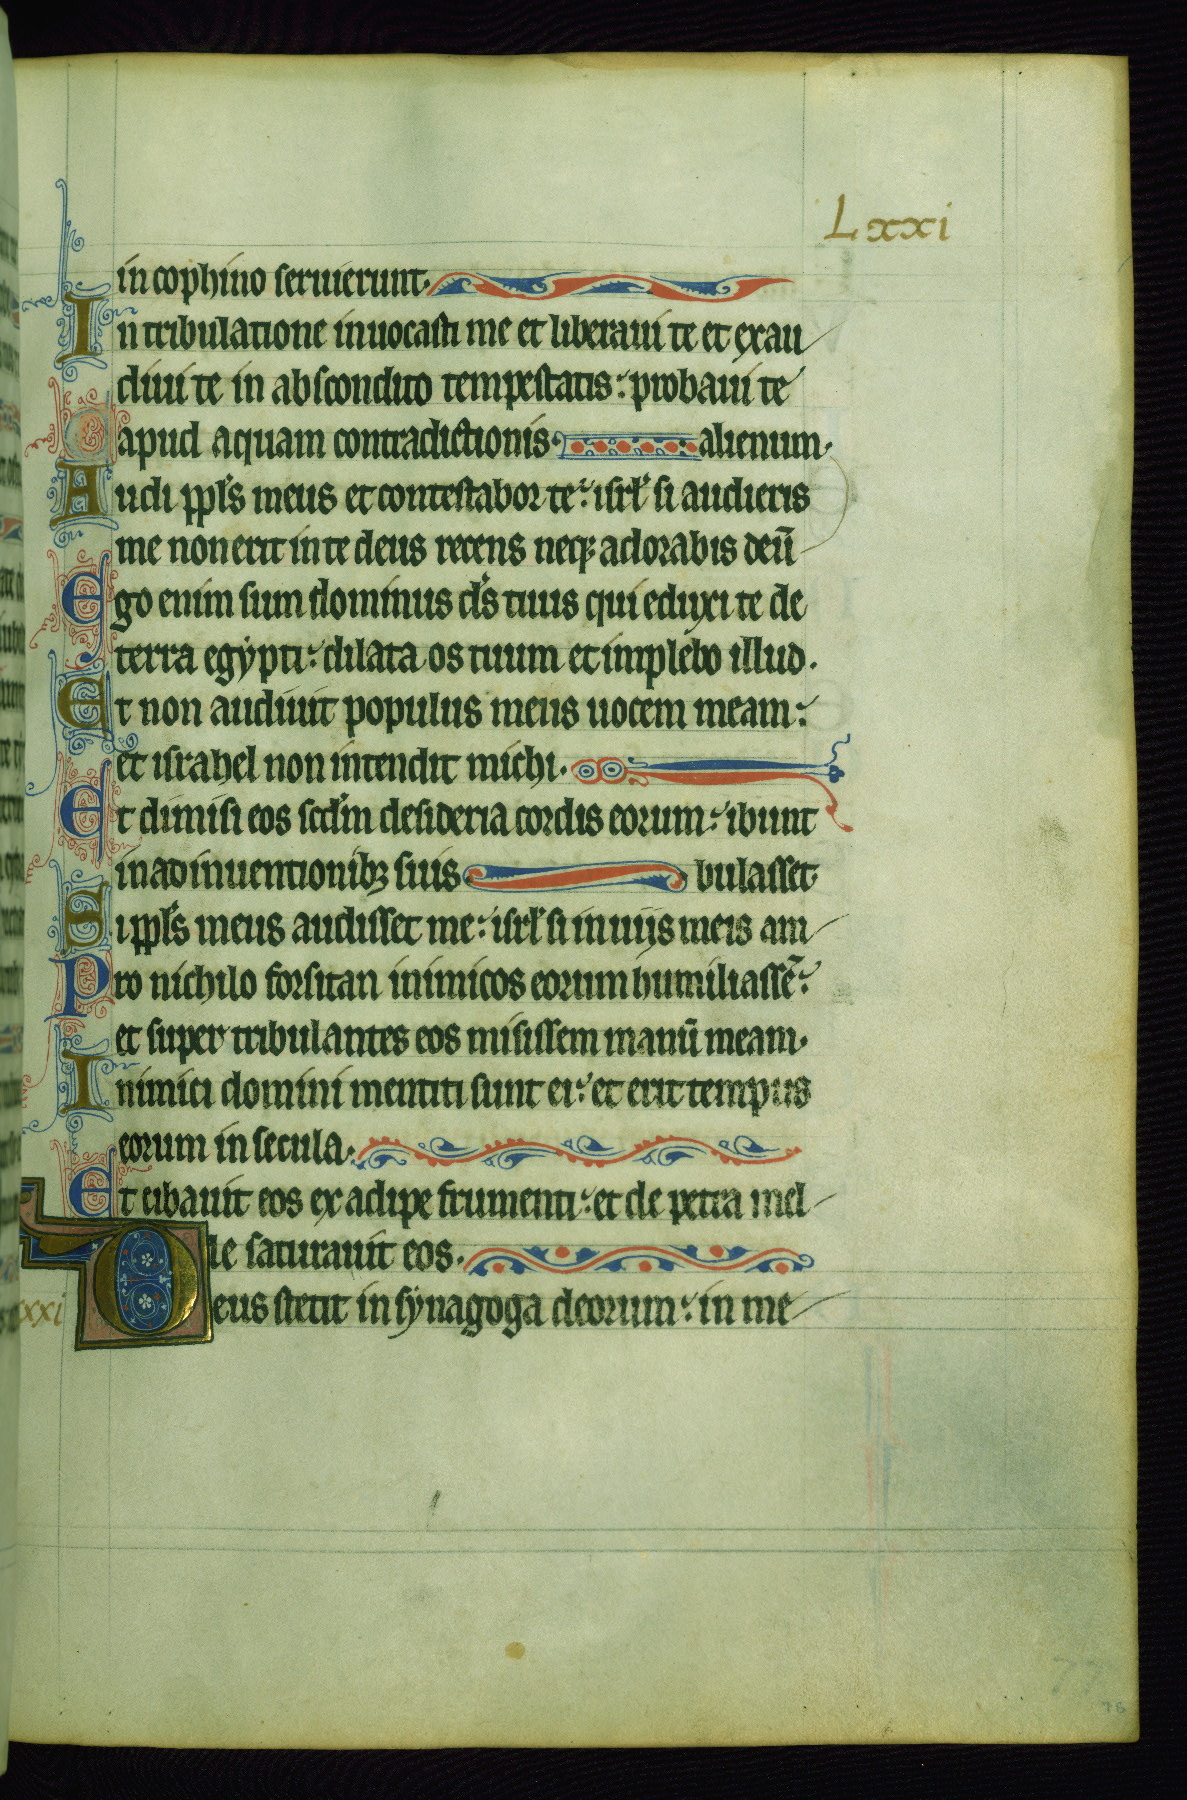 Lxxi
in cophino seruierunt.
In tribulatione inuocasti me et liberaui te et exau
diui te in abscondito tempestatis: probaui te
apud aquam contradictionis. alienum.
Audi ppl's meus et contestabor te: isrl' si audieris
me non erit in te deus recens neq; adorabis deū
Ego enim sum dominus d's tuus qui eduxi te de
terra egypti: dilata os tuum et implebo illud.
Et non audiuit populus meus uocem meam:
et israhel non intendit michi.
Et dimisi eos scd'm desideria cordis eorum: ibunt
in adinuentionib; suis. bulasset.
Si ppl's meus audisset me: isrl' si in uijs meis am
Pro nichilo forsitan inimicos eorum humiliassē:
et super tribulantes eos misissem manū meam.
Inimici domini mentiti sunt ei: et erit tempus
eorum in secula.
Et cibauit eos ex adipe frumenti: et de petra mel
le saturauit eos.
xxi Deus stetit in synagoga deorum: in me
77
78